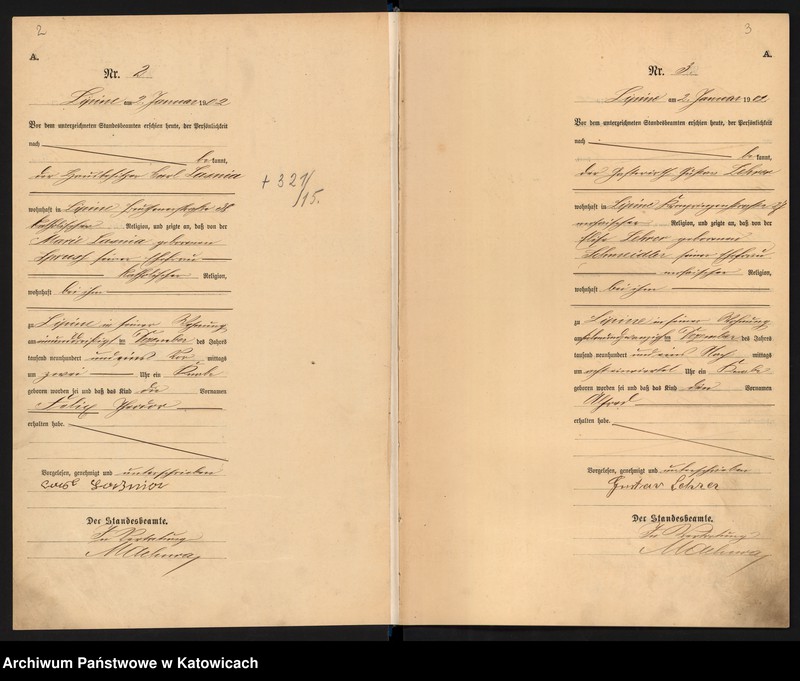 2
A.
Nr. 2.
Lipine am 2. Januar 1902
Vor dem unterzeichneten Standesbeamten erschien heute, der Persönlichkeit
nach
be kannt,
der Carl Lasnia
wohnhaft in Lipine 38
katholischer Religion, und zeigte an, daß von der
Marie Lasnia geborenen
seiner Ehefrau
katholischer Religion,
wohnhaft bei ihm
zu Lipine in seiner Wohnung
am einunddreißigsten Dezember des Jahres
tausend neunhundert und eins Vor mittags
um zwei Uhr ein Knabe
geboren worden sei und daß das Kind die Vornamen
Felix
erhalten habe.
Vorgelesen, genehmigt und unterschrieben
Der Standesbeamte.
In Vertretung
+ 321/
/15.
3
A.
Nr. 3.
Lipine am 2. Januar 1902
Vor dem unterzeichneten Standesbeamten erschien heute, der Persönlichkeit
nach
be kannt,
der Gastwirth Gustav Lehrer
wohnhaft in Lipine
mosaischer Religion, und zeigte an, daß von der
Lehrer geborenen
Schmeidler seiner Ehefrau
mosaischer Religion,
wohnhaft bei ihm
zu Lipine in seiner Wohnung
am Dezember des Jahres
tausend neunhundert und eins Nach mittags
um Uhr ein Knabe
geboren worden sei und daß das Kind den Vornamen
Alfred
erhalten habe.
Vorgelesen, genehmigt und unterschrieben
Gustav Lehrer
Der Standesbeamte.
In Vertretung
Archiwum Państwowe w Katowicach